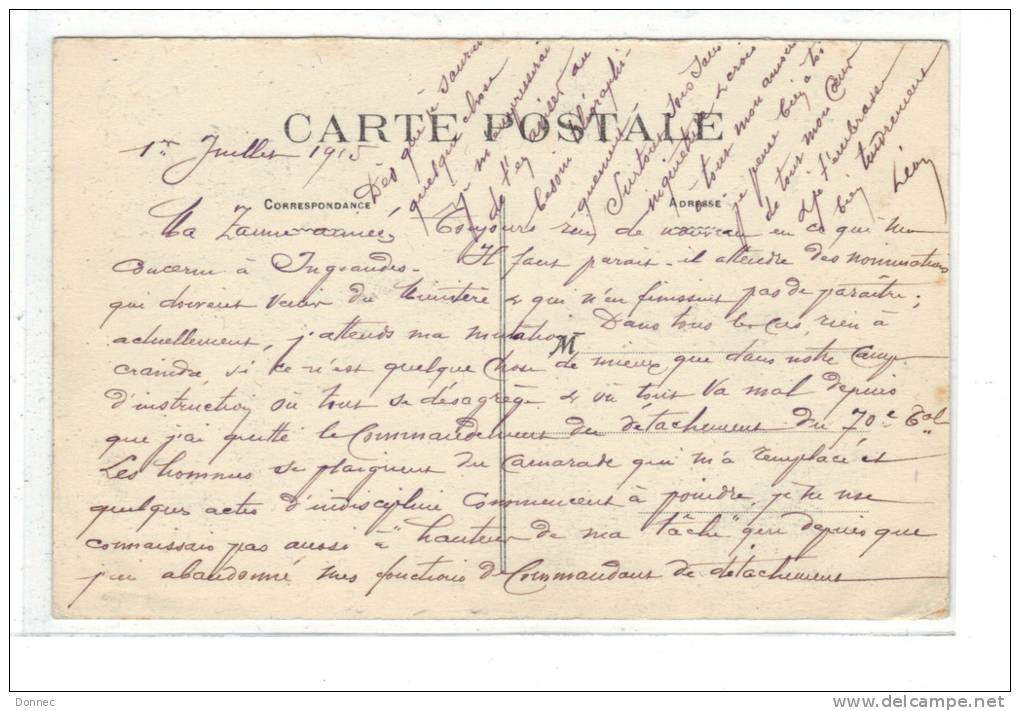 CARTE POSTALE
1er Juillet 1915
CORRESPONDANCE
ADRESSE
Ma aimée, Toujours rien de nouveau en ce qui me
concerne à Ingrandes. Il faut paraît-il attendre des nominations
qui doivent venir du Ministère & qui n'en finissent pas de paraître;
actuellement, j'attends ma mutation. Dans tous les cas, rien à
craindre si ce n'est quelque chose de mieux que dans notre Camp
d'instruction où tout se désagrège & où tout va mal depuis
que j'ai quitté le Commandement du détachement du 70e Tal
Les hommes se plaignent du camarade qui m'a remplacé et
quelques actes d'indiscipline commencent à poindre, je ne me
connaissais pas aussi à "hauteur de ma tâche" que depuis que
j'ai abandonné mes fonctions de Commandant de détachement
Dès que je saurai
quelque chose
je m'empresserai
de t'en aviser au
besoin télégraphi-
quement
Surtout sois sans
inquiétude & crois
à tout mon amour
je pense bien à toi
de tout mon Cœur
& je t'embrasse
bien tendrement
Léon
M
Donnec
www.delcampe.net